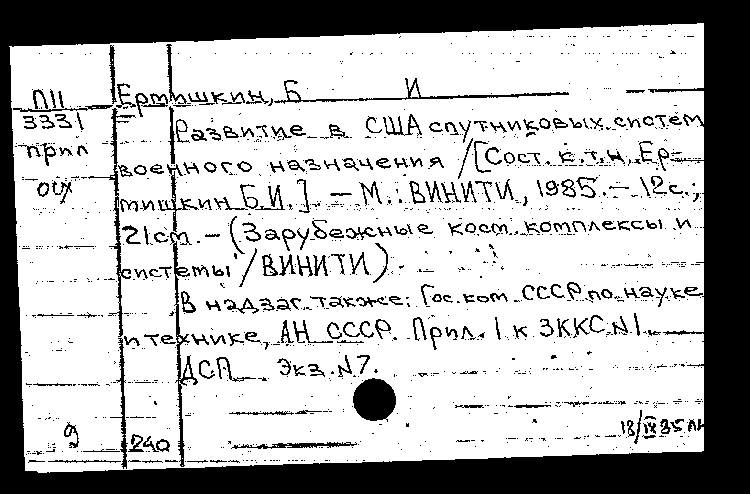 П11 Ермишкин, Б И
3331 Развитие в США спутниковых систем
прил военного назначения /[Сост. к.т.н. Ер-
мишкин Б.И.] – М.: ВИНИТИ, 1985. – 12с.;
21см. – (Зарубежные косм. комплексы и
системы / ВИНИТИ).
В надзаг. также: Гос. ком. СССР по науке
и технике, АН СССР. Прил. 1 к ЗККС N1.
ДСП Экз. N7.
9 240 18/IX 85